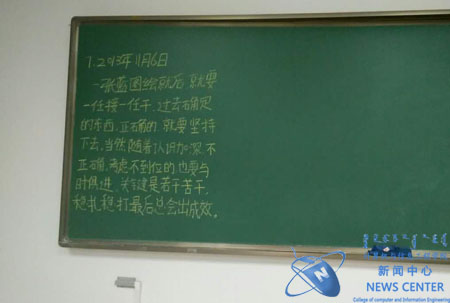 1.2013年11月6日
一张蓝图绘就后,就要
一任接一任干,过去确定
的东西,正确的,就要坚持
下去,当然随着认识加深,不
正确、考虑不到位的也要与
时俱进,关键是若干苦干,
稳扎稳打最后总会出成效。
新闻中心
NEWS CENTER
College of computer and Information Engineering